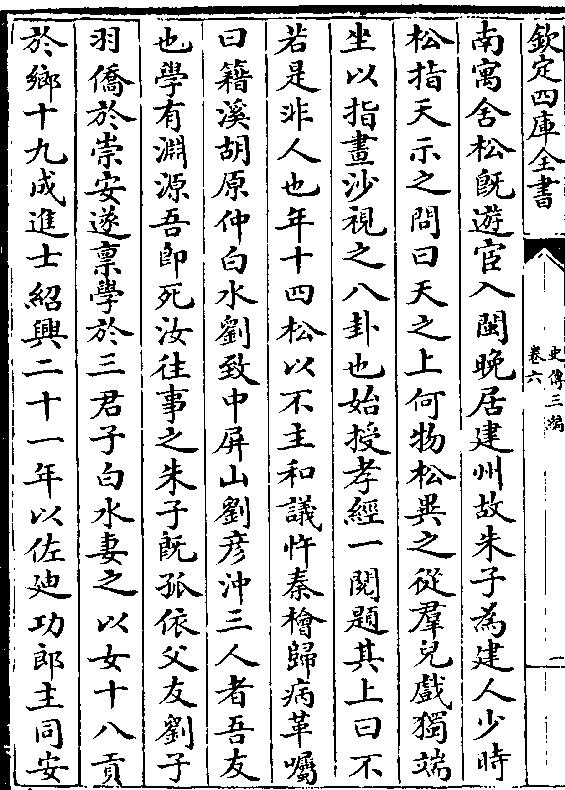 欽定四庫全書
史傳三編
卷六
二
南寓舍松既遊宦入閩晚居建州故朱子為建人少時
松指天示之問曰天之上何物松異之從羣兒戲獨端
坐以指畫沙視之八卦也始授孝經一閱題其上曰不
若是非人也年十四松以不主和議忤秦檜歸病革囑
曰籍溪胡原仲白水劉致中屏山劉彦沖三人者吾友
也學有淵源吾即死汝往事之朱子既孤依父友劉子
羽僑於崇安遂禀學於三君子白水妻之以女十八貢
於鄉十九成進士紹興二十一年以佐廸功郎主同安